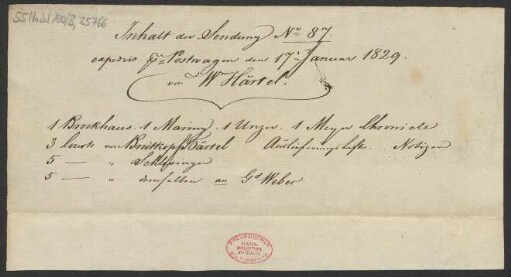 55 Nachl 100/B, 25766
Inhalt der Sendung No 87.
expedirt pr Postwagen den 17. Januar 1829.
von Wm Härtel.
1 Brockhaus. 1 Maring. 1 Unger. 1 Meyer Chronicle
3 von Breitkopf & Härtel Auslieferungsliste. Notizen
5 — " Schlesinger
5 — " demselben an Gd Weber